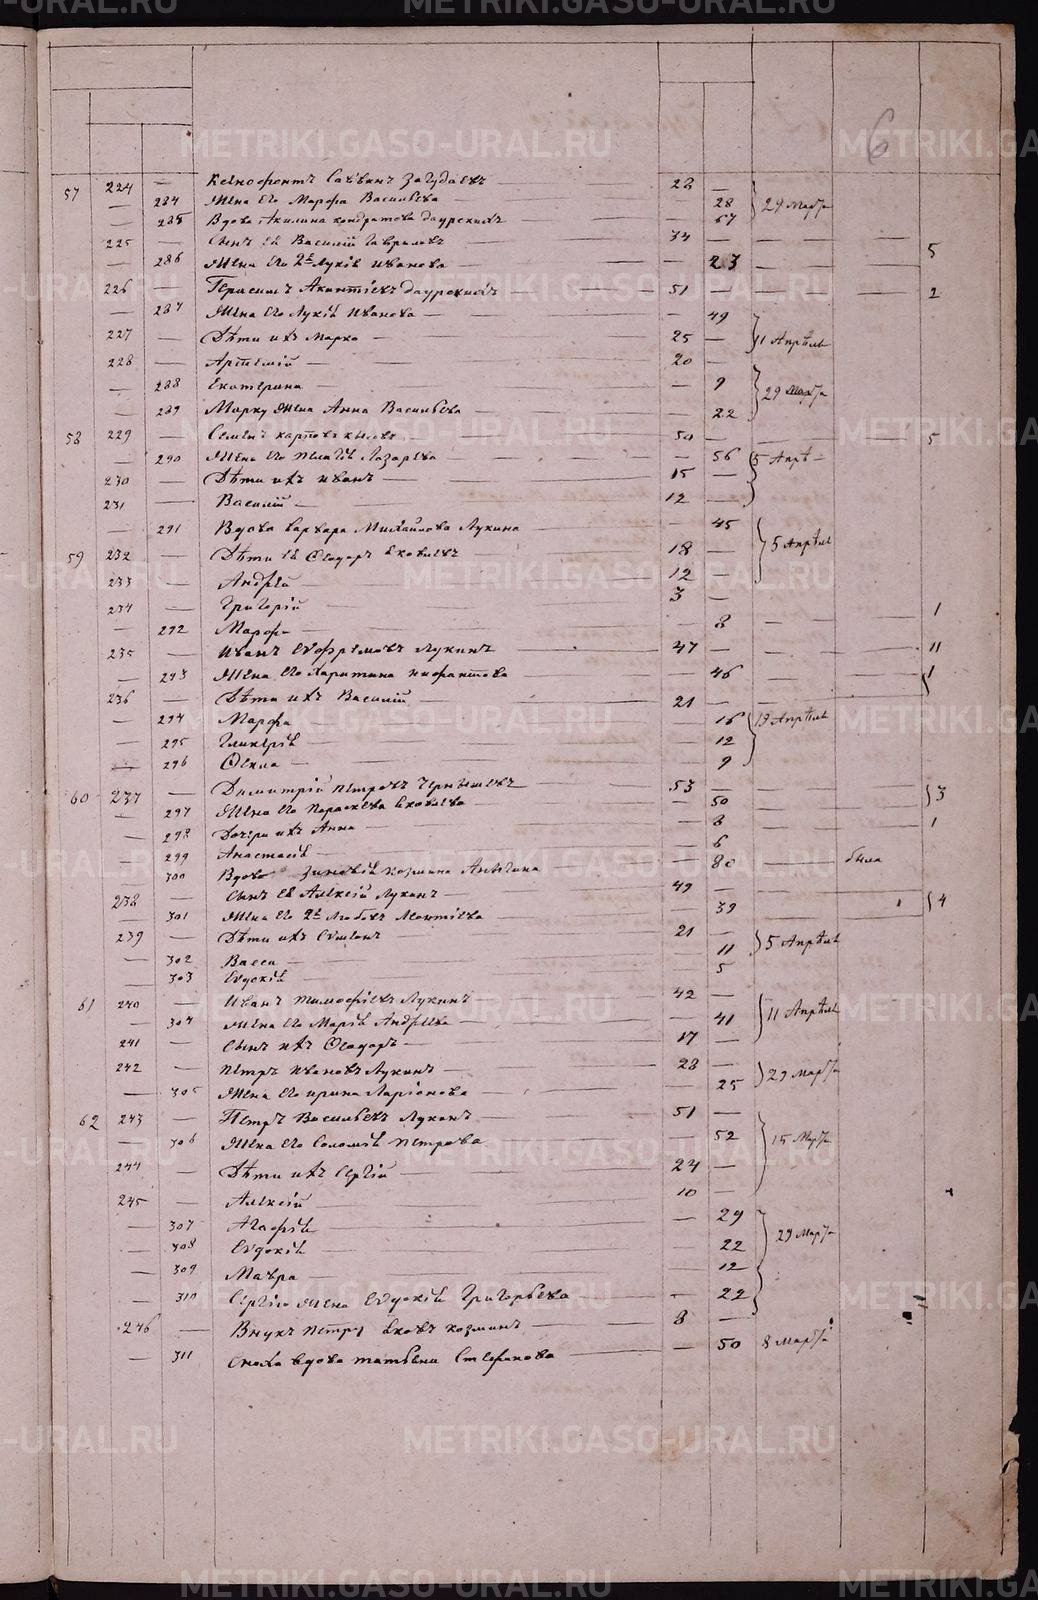 6
57 224 — Ксенофонтъ Саввинъ Загудаевъ — 28 —
— 284 Жена его Марфа Васильева — 28 } 29 Марта
— 285 Вдова Акилина Кондратова Даурскихъ — 67
225 — Сынъ ея Василій Гавриловъ — 34 — 5
— 286 Жена его 2я Лукія Иванова — 23
226 — Герасимъ Акинтіевъ Даурскихъ 51 — 2
— 287 Жена его Лукія Иванова — 49
227 — Дѣти ихъ Марко — 25 — } 11 Апрѣля
228 — Артемій — 20 —
— 288 Екатерина — 9 } 29 Марта
— 289 Марку жена Анна Васильева — 22
58 229 — Семенъ Карповъ — 50 — 5
— 290 Жена его Пелагія Лазарева — 56 } 5 Апрѣ
230 — Дѣти ихъ Иванъ — 15 —
231 — Василій — 12 —
— 291 Вдова Варвара Михайлова Лукина — 45 } 5 Апрѣля
59 232 — Дѣти ея Ѳеодоръ Яковлевъ 18 —
233 — Андрей — 12 —
234 — Григорій — 3 — 1
— 292 Марфа — 8 —
235 — Иванъ Евфремовъ Лукинъ 47 — 11
— 293 Жена его Харитина Нифантова — 46 1
236 — Дѣти ихъ Василій — 21 —
— 294 Марфа — 16 } 13 Апрѣля
— 295 Гликерія — 12
— 296 Ѳекла — 9
60 237 — Димитрій Петровъ Чернышевъ 53 — } 3
— 297 Жена его Параскева Яковлева — 50
— 298 Дочери ихъ Анна — 8 — 1
— 299 Анастасія — 6
— 300 Вдова Зиновія Козмина — 80 — была
238 — Сынъ ея Алексій Лукинъ — 49 —
— 301 Жена его 2я Любовь — 39 } 4
239 — Дѣти ихъ — 21 —
— 302 Васса — 11 } 5 Апрѣля
— 303 Евдокія — 5
61 240 — Иванъ Тимофіевъ Лукинъ 42 —
— 304 Жена его Марія Андреева — 41 } 11 Апрѣля
241 — Сынъ ихъ Ѳеодоръ — 17 —
242 — Петръ Ивановъ Лукинъ — 28 — } 29 Марта
— 305 Жена его Ирина Ларіонова — 25
62 243 — Петръ Васильевъ Лукинъ — 51 —
— 306 Жена его Соломія Петрова — 52 } 15 Марта
244 — Дѣти ихъ Сергій — 24 —
245 — Алексій — 10 —
— 307 Агафія — 29
— 308 Евдокія — 22 } 29 Марта
— 309 Мавра — 12
— 310 Сергію жена Евдокія Григорьева — 22
246 — Внукъ Петру Яковъ Козминъ — 8 —
— 311 Сноха вдова Татьяна Стефанова — 50 8 Марта
METRIKI.GASO-URAL.RU